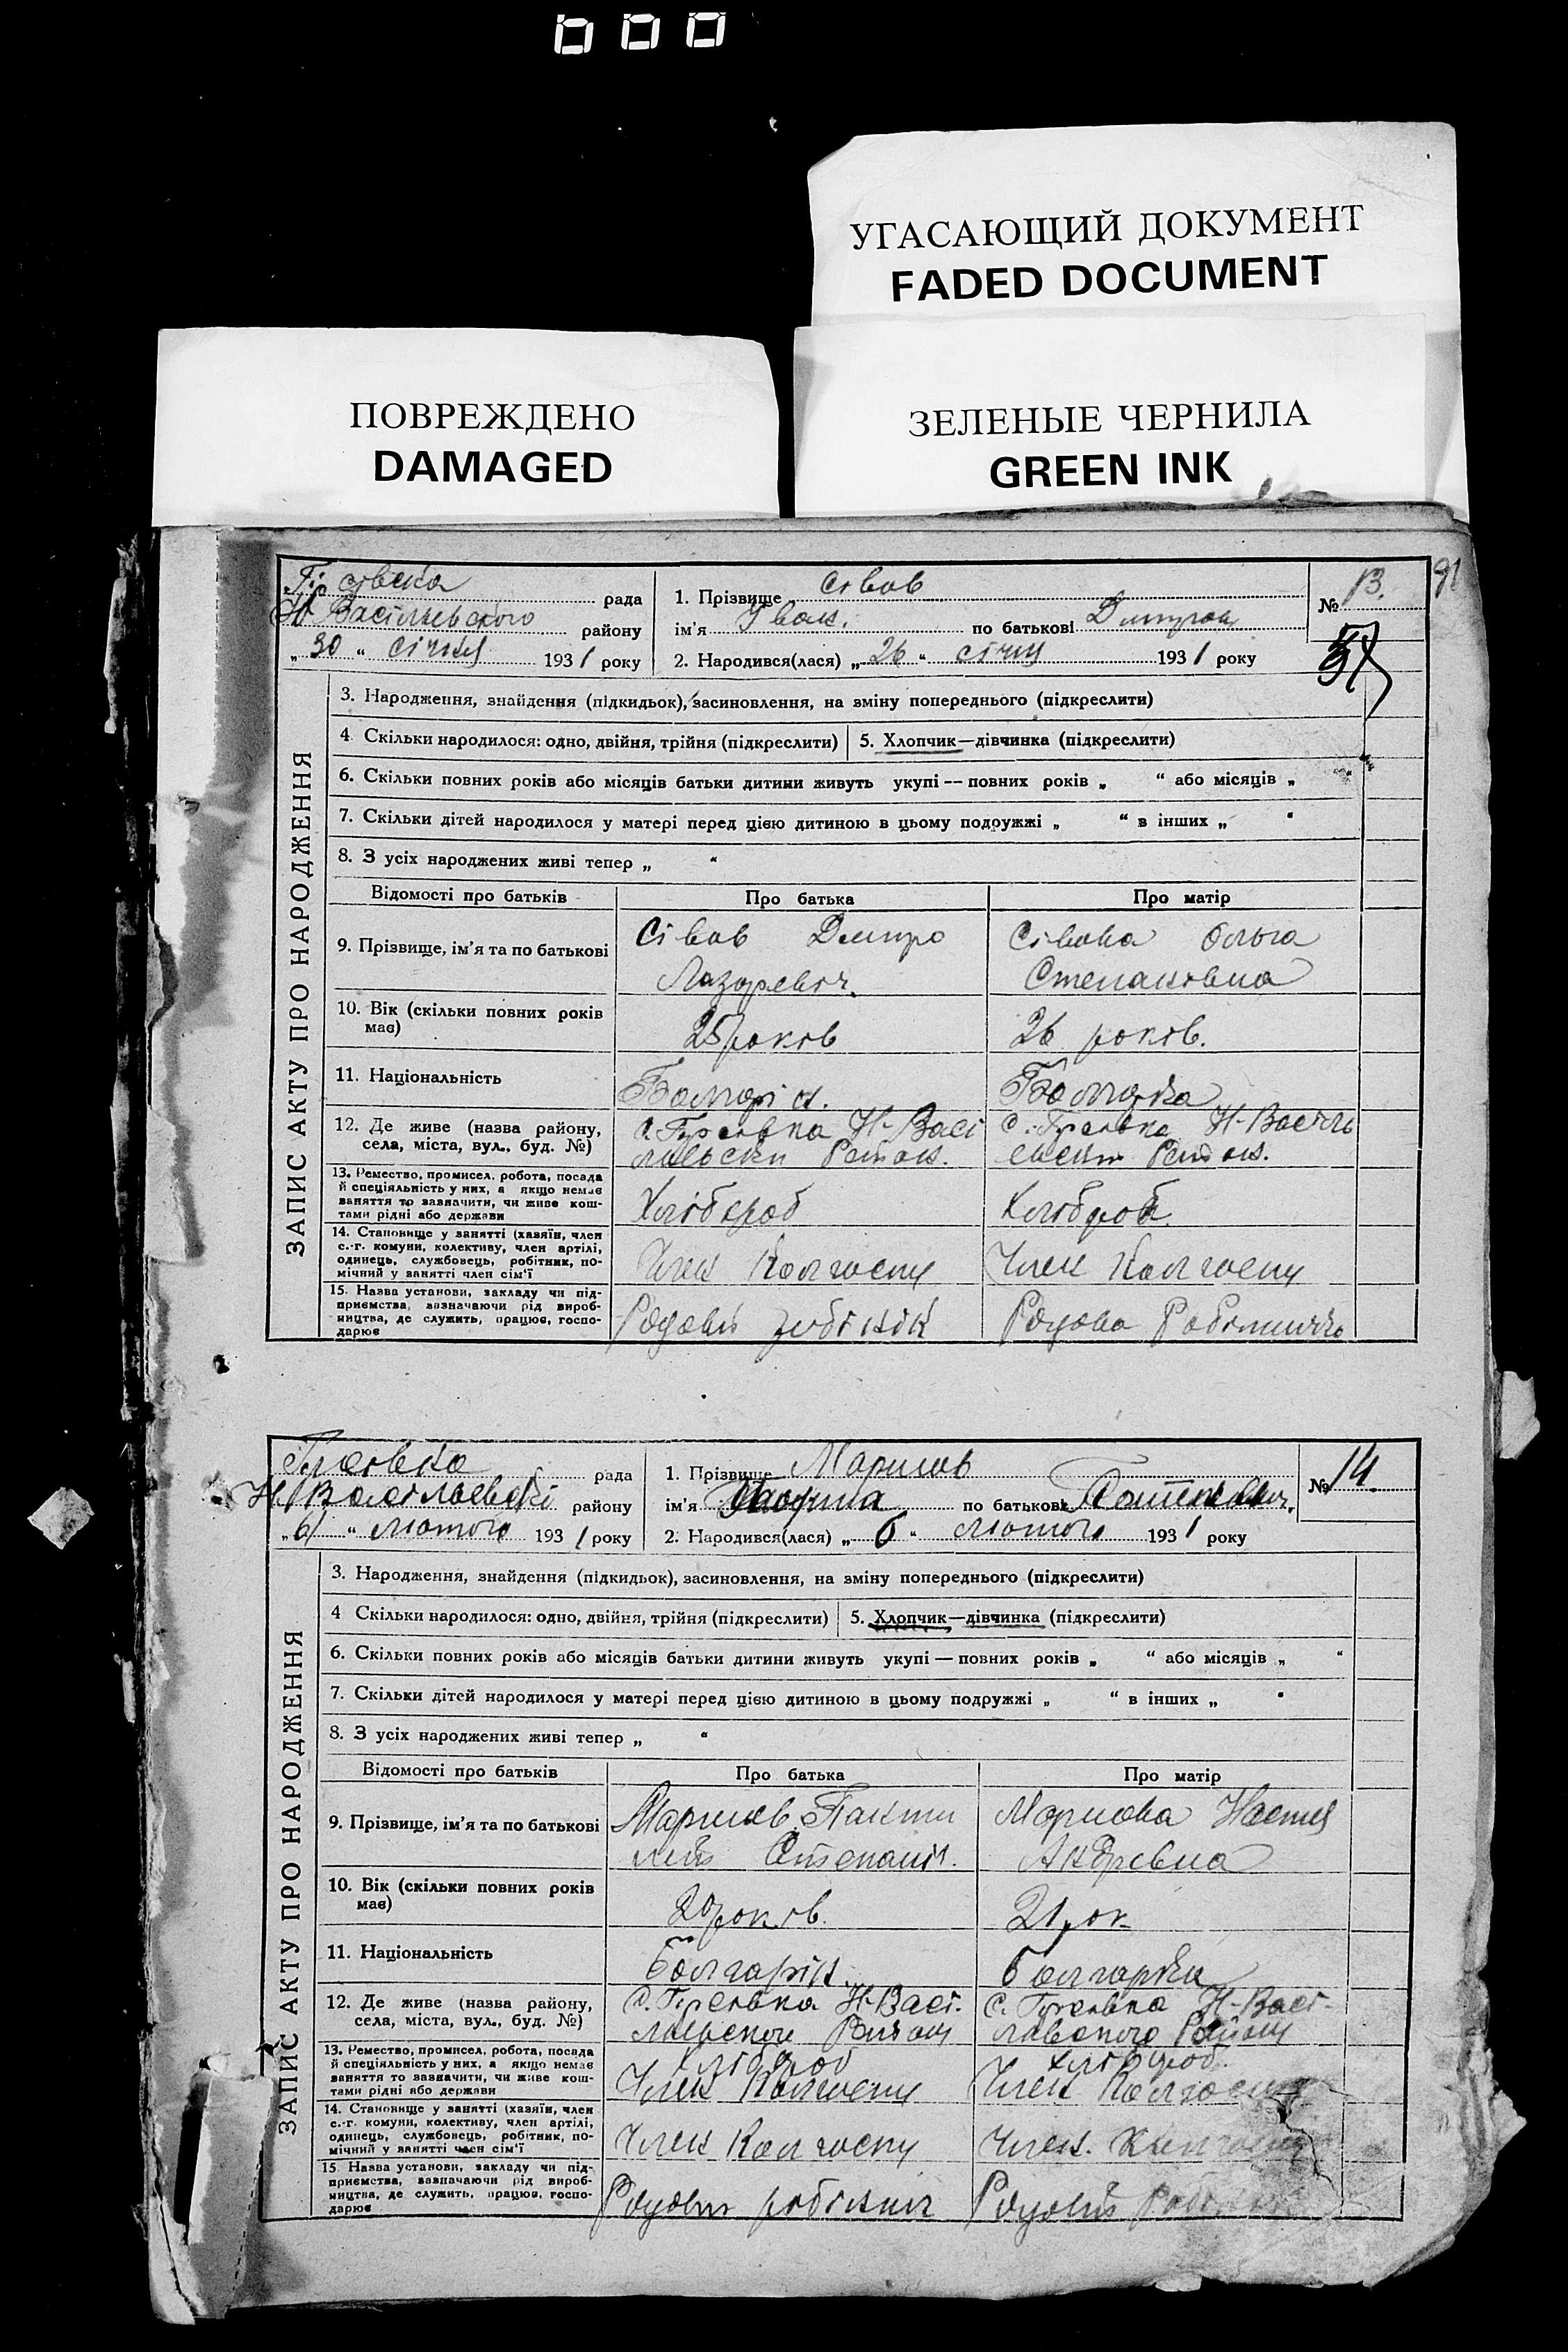 УГАСАЮЩИЙ ДОКУМЕНТ
FADED DOCUMENT
ПОВРЕЖДЕНО
DAMAGED
ЗЕЛЕНЫЕ ЧЕРНИЛА
GREEN INK
91
рада
району
„ 30 “ січня 1931 року
1. Прізвище Сівов
ім'я Іван. по батькові
2. Народився(лася) „ 26 “ січня 1931 року
№ 13.
ЗАПИС АКТУ ПРО НАРОДЖЕННЯ
3. Народження, знайдення (підкидьок), засиновлення, на зміну попереднього (підкреслити)
4. Скільки народилося: одно, двійня, трійня (підкреслити)
5. Хлопчик—дівчинка (підкреслити)
6. Скільки повних років або місяців батьки дитини живуть укупі — повних років „ “ або місяців „ “
7. Скільки дітей народилося у матері перед цією дитиною в цьому подружжі „ “ в інших „ “
8. З усіх народжених живі тепер „ “
Відомості про батьків
Про батька
Про матір
9. Прізвище, ім'я та по батькові
Сівов Дмитро
Лазаревіч.
Сівова Ольга
Степановна
10. Вік (скільки повних років
має)
25 років
26 років.
11. Національність
Болгарін.
Болгарка
12. Де живе (назва району,
села, міста, вул., буд. №)
Н-Васі
Н-Василь
13. Ремество, промисел, робота, посада
й спеціяльність у них, а якщо немає
заняття то зазначити, чи живе кош-
тами рідні або держави
Хлібороб
Хлібороб
14. Становище у занятті (хазяїн, член
с.-г. комуни, колективу, член артілі,
одинець, службовець, робітник, по-
мічний у занятті член сім'ї
Член Колгоспу
Член Колгоспу
15. Назва установи, закладу чи під-
приємства, зазначаючи рід вироб-
ництва, де служить, працює, госпо-
дарює
рада
району
„ 6 “ лютого 1931 року
1. Прізвище Марінов
ім'я по батькові
2. Народився(лася) „ 6 “ лютого 1931 року
№ 14.
ЗАПИС АКТУ ПРО НАРОДЖЕННЯ
3. Народження, знайдення (підкидьок), засиновлення, на зміну попереднього (підкреслити)
4 Скільки народилося: одно, двійня, трійня (підкреслити)
5. Хлопчик—дівчинка (підкреслити)
6. Скільки повних років або місяців батьки дитини живуть укупі — повних років „ “ або місяців „ “
7. Скільки дітей народилося у матері перед цією дитиною в цьому подружжі „ “ в інших „ “
8. З усіх народжених живі тепер „ “
Відомості про батьків
Про батька
Про матір
9. Прізвище, ім'я та по батькові
Марінов
Марінова Настя
Андревна
10. Вік (скільки повних років
має)
20 років.
21 рок
11. Національність
болгарін.
болгарка
12. Де живе (назва району,
села, міста, вул., буд. №)
Н-Васі-
Н-Васі-
13. Ремество, промисел, робота, посада
й спеціяльність у них, а якщо немає
заняття то зазначити, чи живе кош-
тами рідні або держави
Хлібороб
Член Колгоспу
хлібороб.
Член Колгоспу
14. Становище у занятті (хазяїн, член
с.-г. комуни, колективу, член артілі,
одинець, службовець, робітник, по-
мічний у занятті член сім'ї
Член Колгоспу
Член. Колгоспу
15. Назва установи, закладу чи під-
приємства, зазначаючи рід вироб-
ництва, де служить, працює, госпо-
дарює